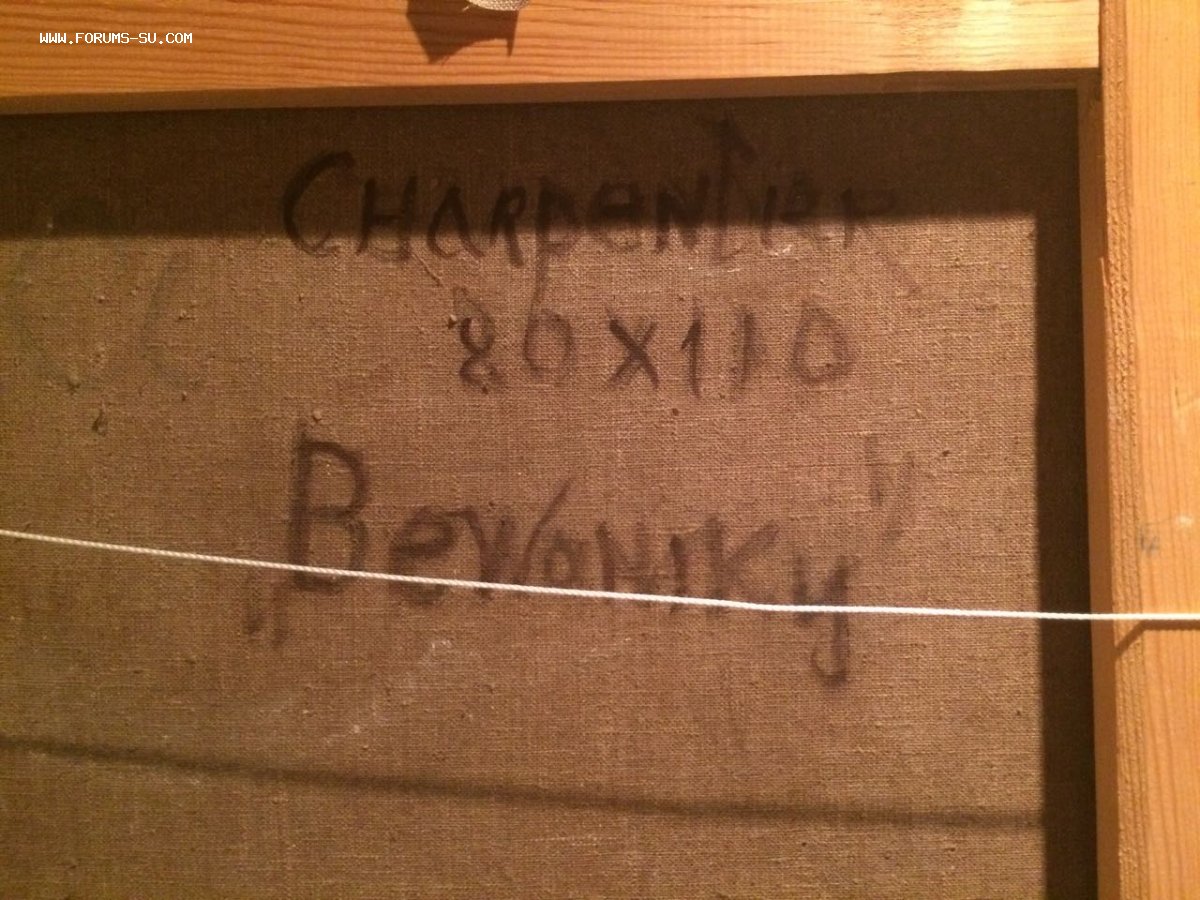 WWW.FORUMS-SU.COM
CHARPENTIER
80X110